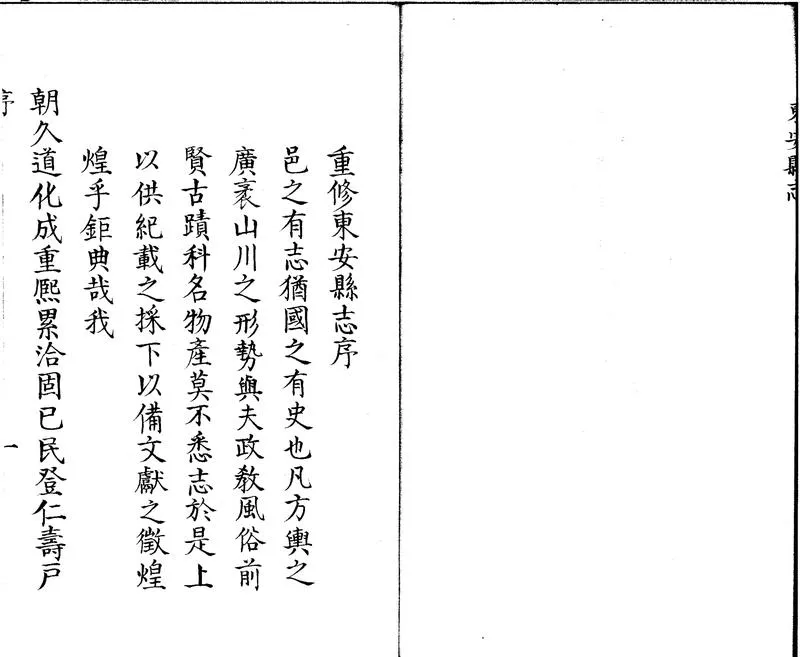 東安縣志
重修東安縣志序
邑之有志猶國之有史也凡方輿之
廣袤山川之形勢與夫政教風俗前
賢古蹟科名物產莫不悉志於是上
以供紀載之採下以備文獻之徵煌
煌乎鉅典哉我
朝久道化成重熈累洽固已民登仁壽戸
序
一